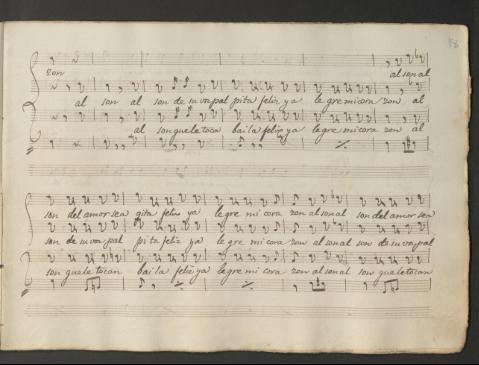 zon al son al
al son al son de su va pal pita feliz ya le gre mi cora zon al
al son que le toca baila feliz ya le gre mi cora zon al
son del amor sea gita feliz ya le gre mi cora zon al son al son del amor sea
son de su va pal pita feliz ya le gre mi cora zon al son al son de su va pal
son que le tocan baila feliz ya le gre mi cora zon al son al son que le tocan